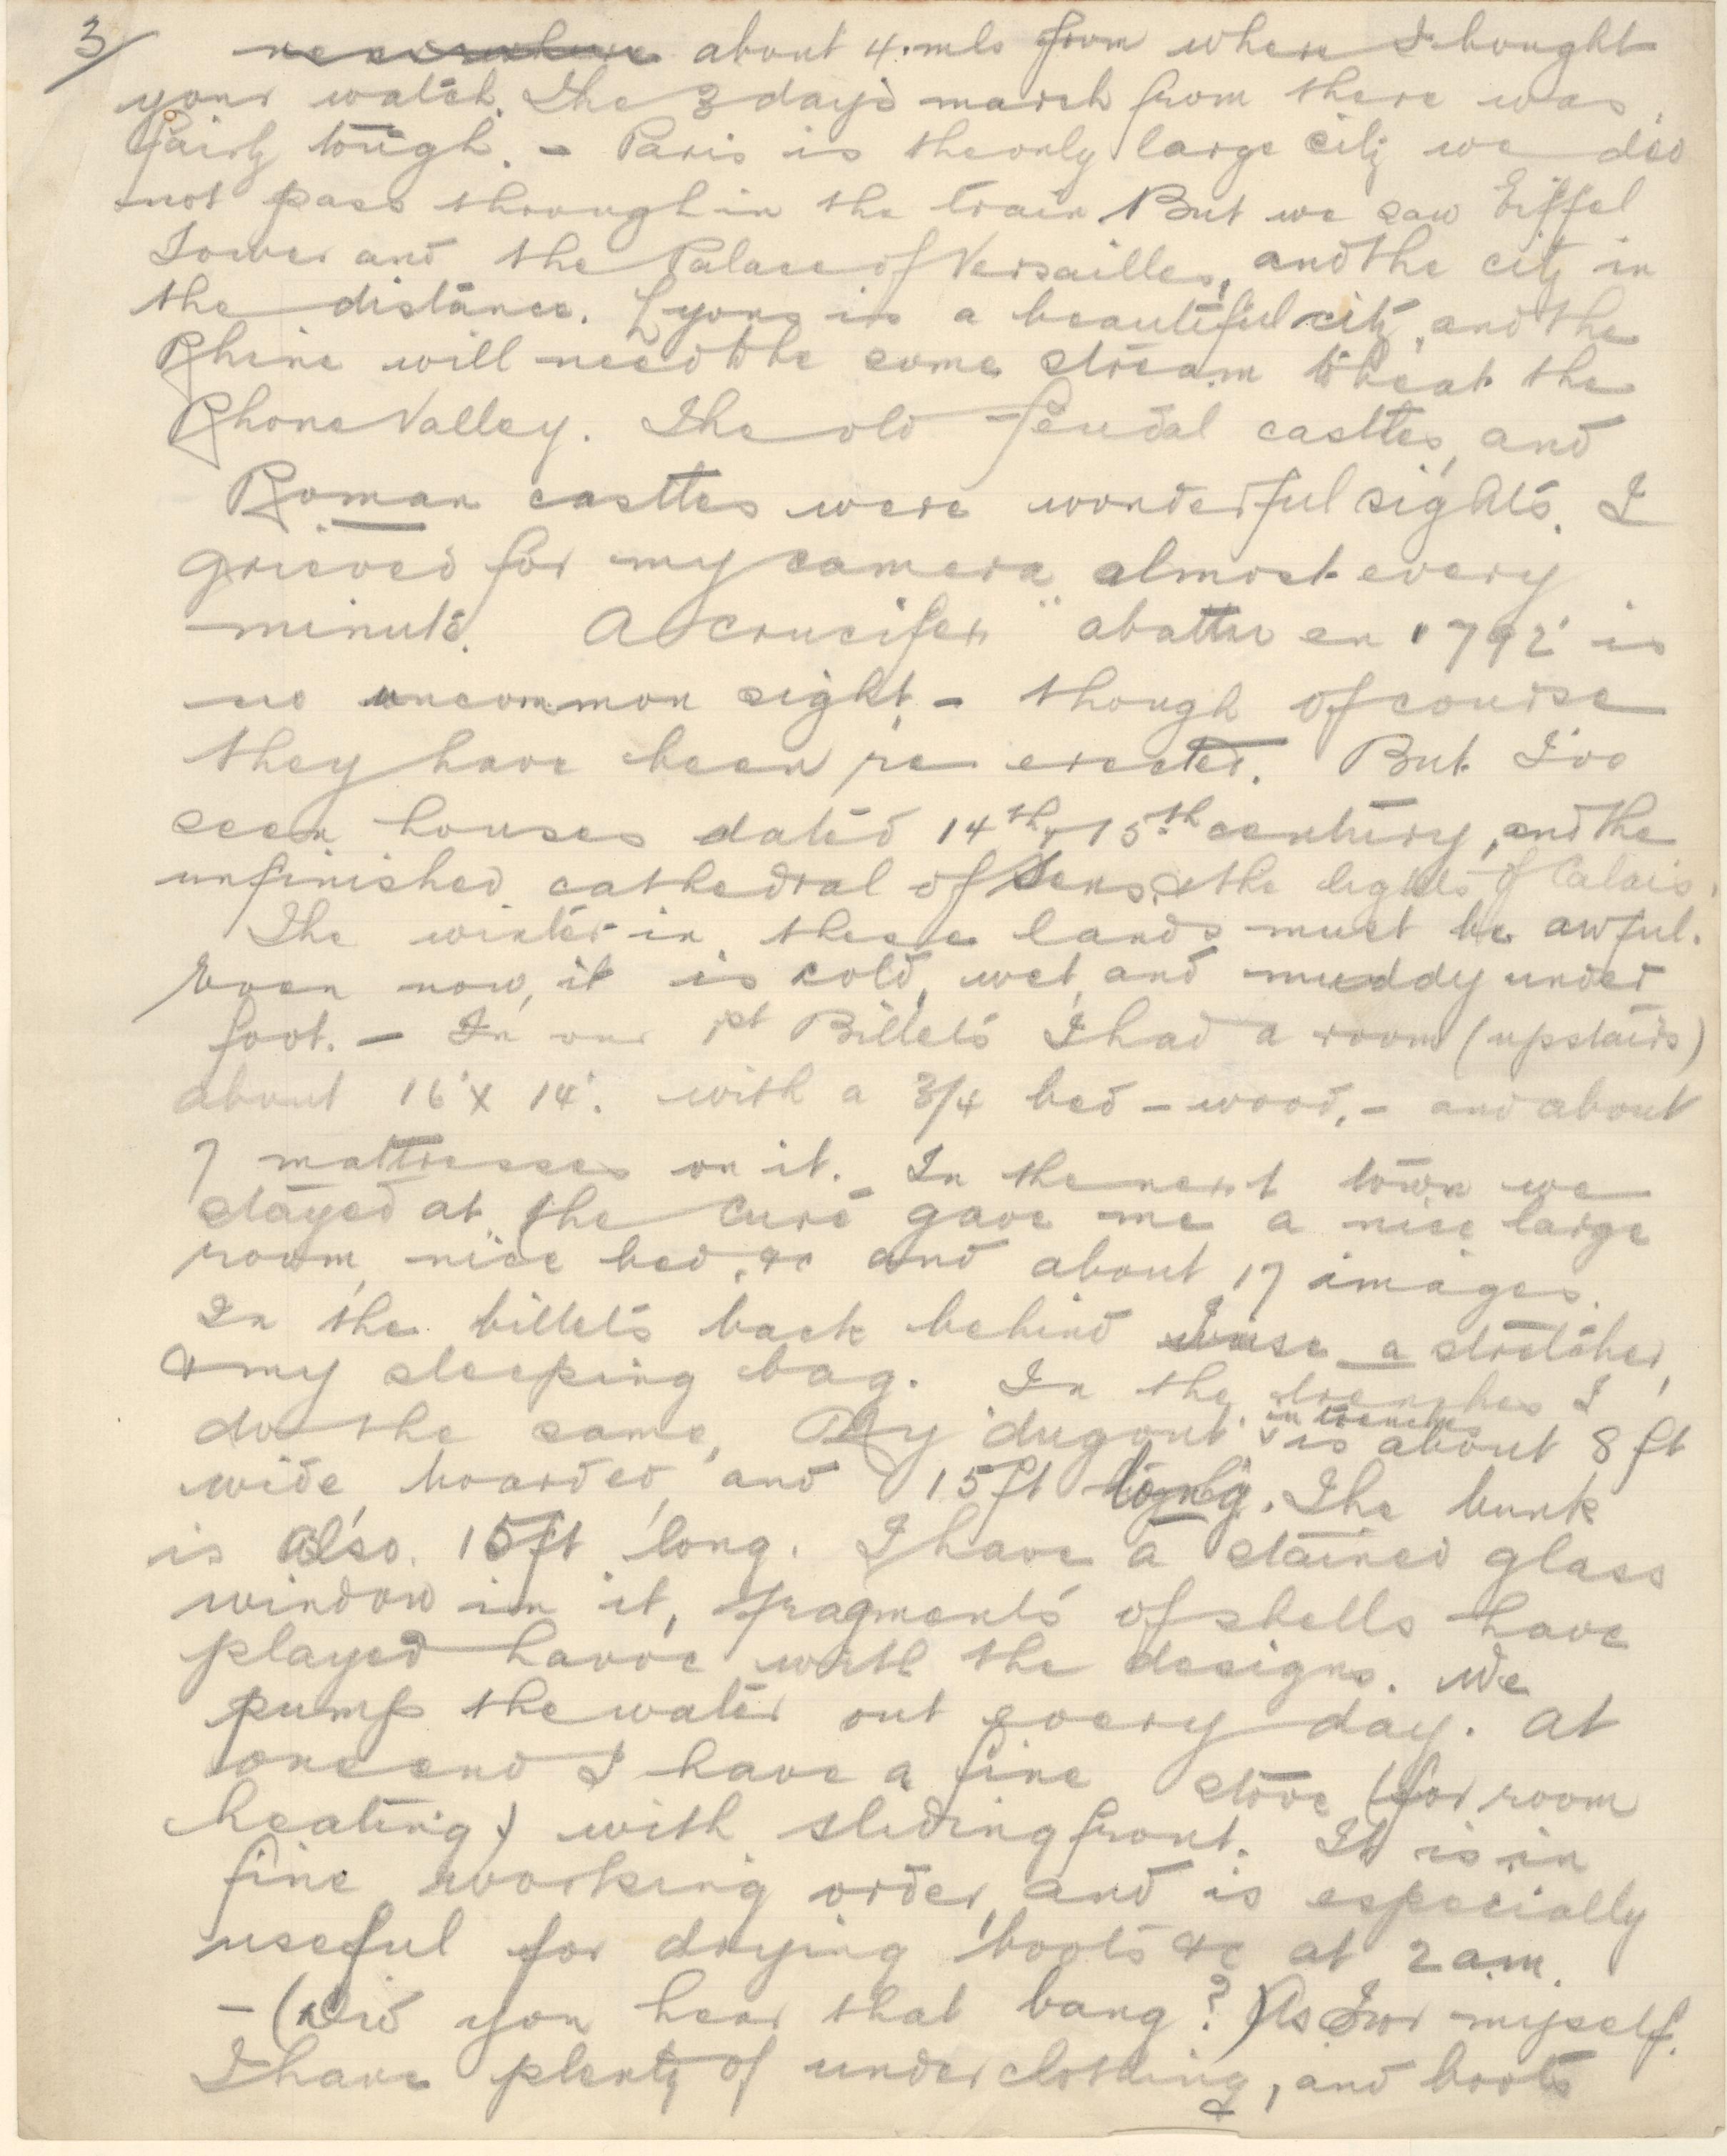 3/ about 4. mls from where I bought
your watch. The 3 days march from there was
fairly tough. - Paris is the only large city we did
not pass through in the train But we saw Eiffel
Tower and the Palace of Versailles, and the city in
the distance. Lyons is a beautiful city, and the
Rhine will need to be some stream to beat the
Rhone Valley. The old feudal castles, and
Roman castles were wonderful sights. I
grieved for my camera almost every
minute. A crucifex "abattu en 1792" is
no uncommon sight, - though of course
they have been re erected. But I've
seen houses dated 14th, 15th century, and the
unfinished cathedral of Sens, & the lights of Calais.
The winter in these lands must be awful.
Even now, it is cold, wet, and muddy under
foot. - In our 1st Billets I had a room (upstairs)
about 16' x 14'. with a 3/4 bed - wood, - and about
7 mattresses on it. In the next town we
stayed at, the Curé gave me a nice large
room, nice bed, &c and about 17 images.
In the billets back behind I use a stretcher,
& my sleeping bag. In the trenches I
do the same, My 'dugout' in trenches is about 8 ft
wide, boarded, and 15 ft long. The bunk
is also 15 ft long. I have a stained glass
window in it, fragments of shells have
played havoc with the designs. We
pump the water out every day. At
one end I have a fine stove (for room
heating) with sliding front. It is in
fine working order, and is especially
useful for drying boots &c at 2 a.m.
- (Did you hear that bang?) As for myself.
I have plenty of underclothing, and boots